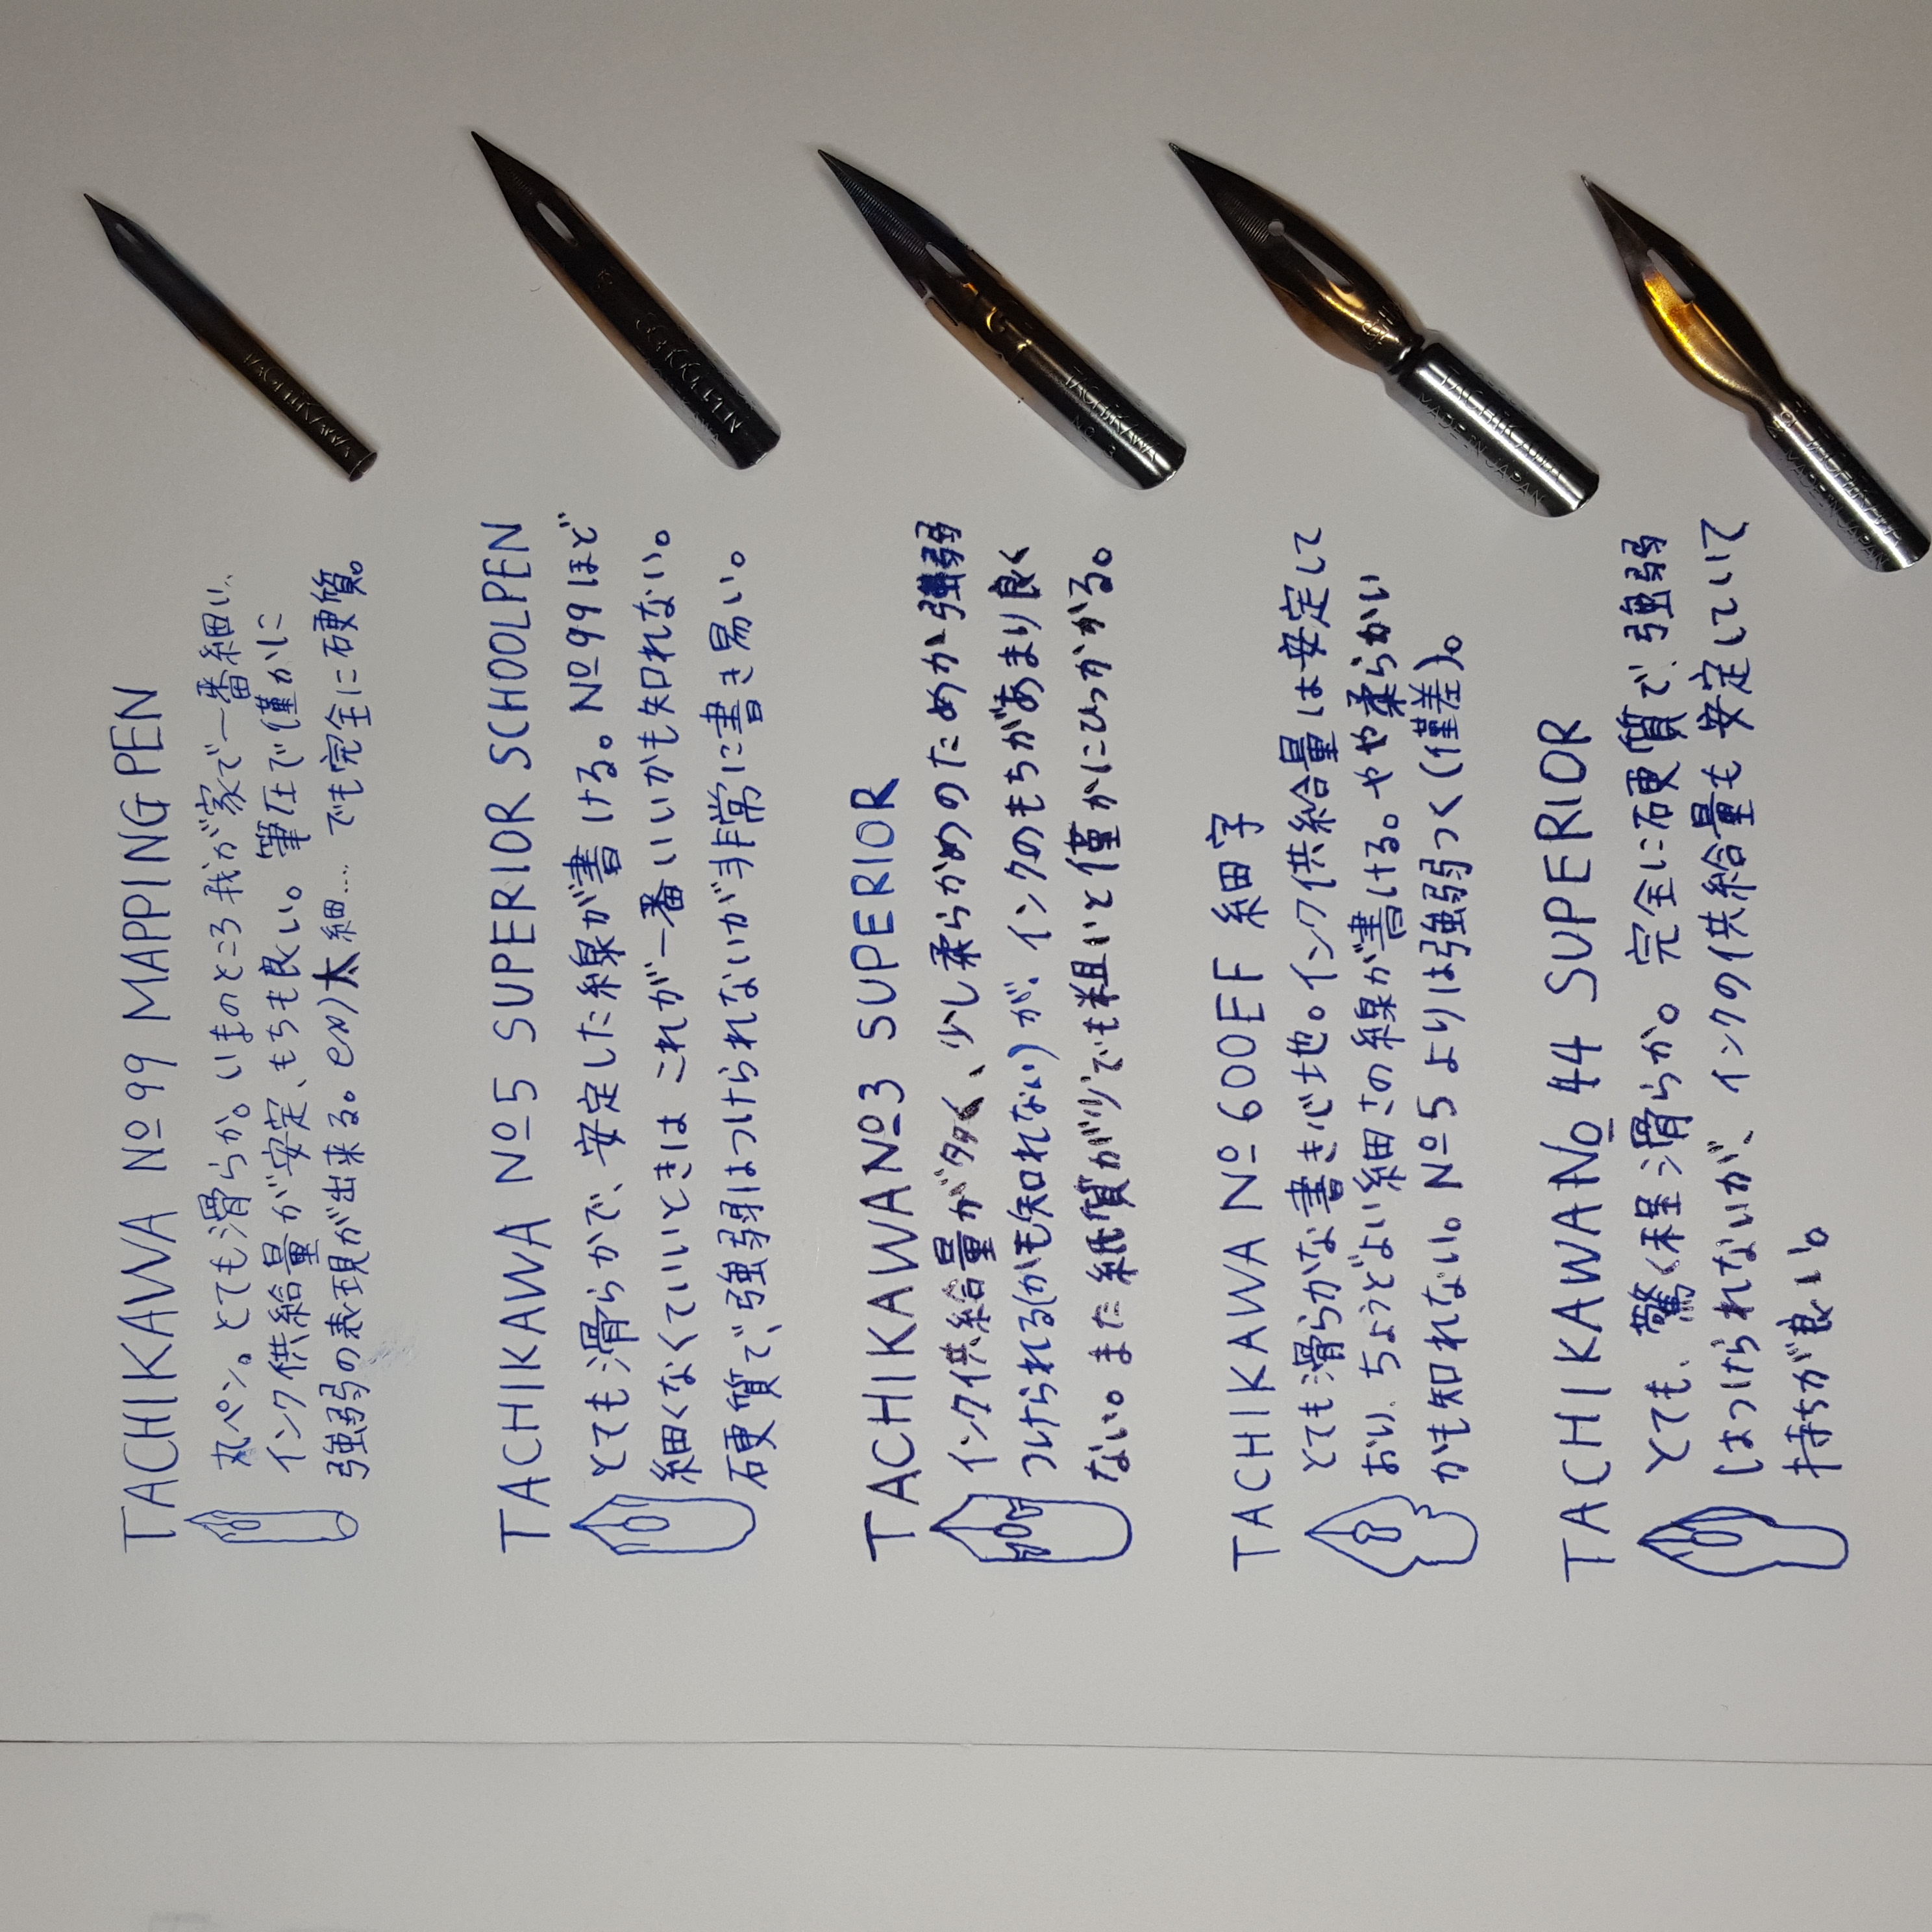 TACHIKAWA Nº99 MAPPING PEN
丸ペン。とても滑らか。いまのところ我が家で一番細い、
インク供給量が安定、もちも良い。筆圧で僅かに
強弱の表現が出来る。 太細.... でも完全に硬質。
TACHIKAWA Nº5 SUPERIOR SCHOOLPEN
とても滑らかで、安定した線が書ける。Nº99ほど
細くなくていいときは これが一番いいかも知れない。
硬質で、強弱はつけられないが非常に書き易い。
TACHIKAWA Nº3 SUPERIOR
インク供給量が多く、少し柔らかめのためか強弱
つけられる(かも知れない)が、インクのもちがあまり良く
ない。また紙質が少しでも粗いと僅かにひっかかる。
TACHIKAWA Nº600EF 細字
とても滑らかな書き心地。インク供給量は安定して
おり、ちょうどよい細さの線が書ける。やや柔らかい
かも知れない。Nº5よりは強弱つく(僅差)。
TACHIKAWA Nº44 SUPERIOR
とても、驚く程滑らか。完全に硬質で、強弱
はつけられないが、インクの供給量も安定していて
持ちが良い。
TACHIKAWA
SCHOOL PEN
TACHIKAWA
NO. 3
TACHIKAWA
MADE IN JAPAN
MADE IN JAPAN